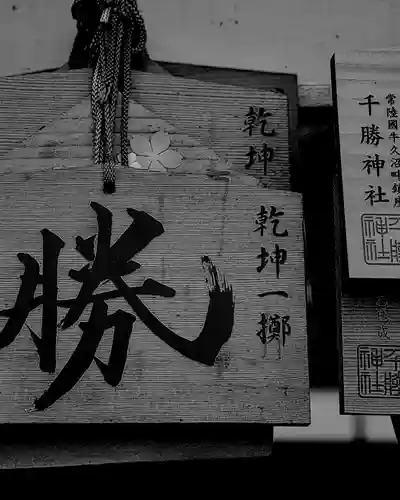 乾坤
勝
乾坤一擲
常陸國牛久沼畔鎮座
千勝神社
千勝
神社
神社